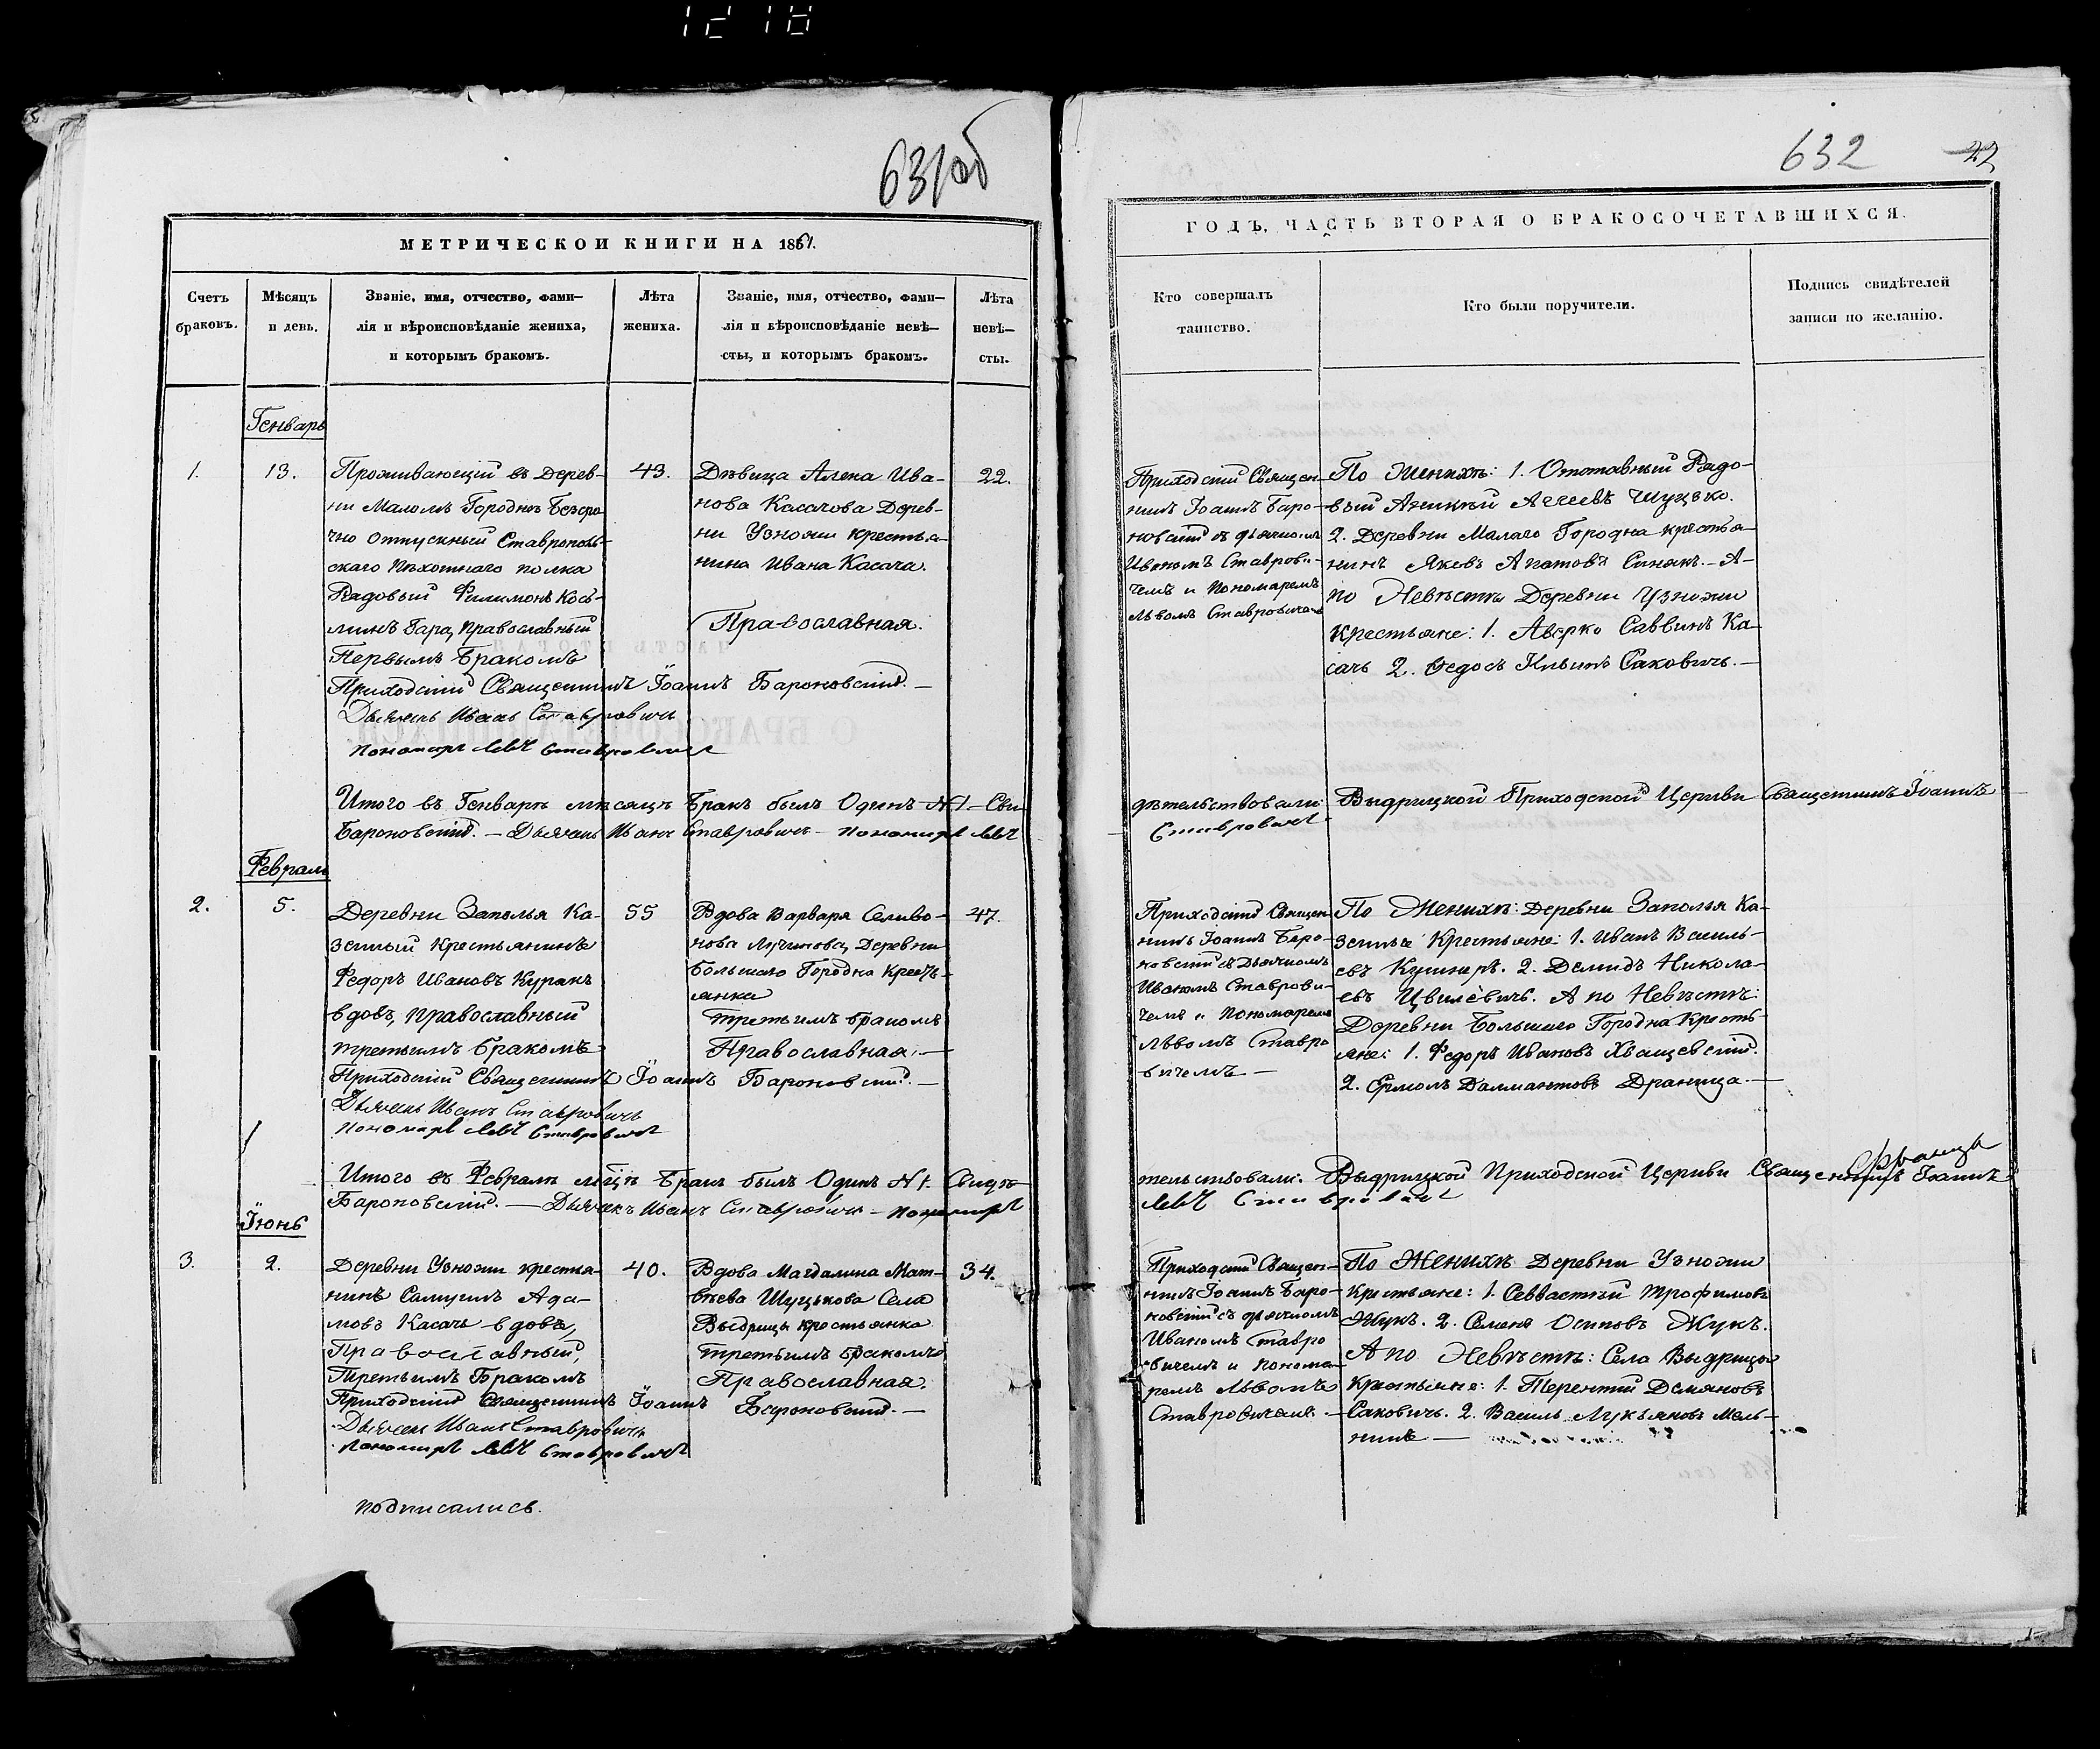 631об
МЕТРИЧЕСКОЙ КНИГИ НА 1861.
Счетъ
браковъ.
Мѣсяцъ
и день.
Званіе, имя, отчество, фами-
лія и вѣроисповѣданіе жениха,
и которымъ бракомъ.
Лѣта
жениха.
Званіе, имя, отчество, фами-
лія и вѣроисповѣданіе невѣ-
сты, и которымъ бракомъ.
Лѣта
невѣ-
сты.
Генварь
1.
13.
Проживающій въ Дерев-
ни Маломъ Городнѣ Безсро
чно отпускный Ставрополь-
скаго Пѣхотнаго полка
Рядовый Филимонъ Кось-
минъ Гара, Православный
Первымъ Бракомъ
43.
Дѣвица Алена Ива-
нова Касачова Дерев-
ни Узножи крестья-
нина Ивана Касача.
Православная.
22.
Приходскій Священникъ Іоаннъ Бароновскій. —
Дьячекъ Иванъ Ставровичъ
Пономарь Левъ Ставровичъ
Итого въ Генварѣ мѣсяцѣ Бракъ былъ Одинъ №1. — Сви-
Бароновскій. — Дьячекъ Иванъ Ставровичъ — Пономарь Левъ
Февраль
2.
5.
Деревни Заполья Ка-
зенный Крестьянинъ
Федоръ Ивановъ Куранъ
вдовъ, Православный
третьимъ бракомъ
55
Вдова Варвара Селиво-
нова Деревни
Большаго Городна Кресть-
янка
третьимъ бракомъ
Православная. —
47.
Приходскій Священникъ Іоаннъ Бароновскій. —
Дьячекъ Иванъ Ставровичъ
Пономарь Левъ Ставровичъ
Итого въ Февралѣ м-цѣ Бракъ былъ Одинъ №1. Свидѣ-
Бароновскій. — Дьячекъ Иванъ Ставровичъ — Пономарь
Іюнь
3.
2.
Деревни Узножи крестья-
нинъ Самуилъ Ада-
мовъ Касачъ вдовъ,
Православный,
Третьимъ Бракомъ
40.
Вдова Магдалина Мат-
вѣева Шуцькова Села
Выдрицы крестьянка
третьимъ бракомъ
Православная.
34.
Приходскій Священникъ Іоаннъ Бароновскій. —
Дьячекъ Иванъ Ставровичъ
Пономарь Левъ Ставровичъ
подписались.
632
22
ГОДЪ, ЧАСТЬ ВТОРАЯ О БРАКОСОЧЕТАВШИХСЯ.
Кто совершалъ
таинство.
Кто были поручители.
Подпись свидѣтелей
записи по желанію.
Приходскій Священ-
никъ Іоаннъ Баро-
новскій съ дьячкомъ
Иваномъ Ставрови-
чемъ и Пономаремъ
Львомъ Ставровичемъ
По Женихѣ: 1. Отставный Рядо-
вый Аникій Шуцько.
2. Деревни Малаго Городна крестья-
нинъ Яковъ Агатовъ Синякъ. — А-
по Невѣстѣ Деревни Узножи
Крестьяне: 1. Аверко Саввинъ Ка-
сачъ 2. Ѳедосъ Ильинъ Саковичъ. —
дѣтельствовали: Выдрицкой Приходской Церкви Священникъ Іоаннъ
Ставровичъ
Приходскій Священ-
никъ Іоаннъ Баро-
новскій съ Дьячкомъ
Иваномъ Ставрови-
чемъ и Пономаремъ
Львомъ Ставро
вичемъ —
По Женихѣ: Деревни Заполья Ка-
зенные Крестьяне: 1. Иванъ Василь-
евъ Кушнеръ. 2. Демидъ Никола-
евъ Цвилевичъ. А по Невѣстѣ:
Деревни Большаго Городна Кресть-
яне: 1. Федоръ Ивановъ Хващевскій.
2. Ермолъ Далмантовъ Драница. —
тельствовали: Выдрицкой Приходской Церкви Священникъ Іоаннъ
Левъ Ставровичъ
Приходскій Священ-
никъ Іоаннъ Баро-
новскій съ дьячкомъ
Иваномъ Ставро
вичемъ и Понома-
ремъ Львомъ
Ставровичемъ. —
По Женихѣ Деревни Узножи
Крестьяне: 1. Севвастій Трофимовъ
Жукъ. 2. Семенъ Осиповъ Жукъ.
А по Невѣстѣ: Села Выдрицы
Крестьяне: 1. Терентій Демяновъ
Саковичъ. 2. Василь Лукьяновъ Мель-
никъ —